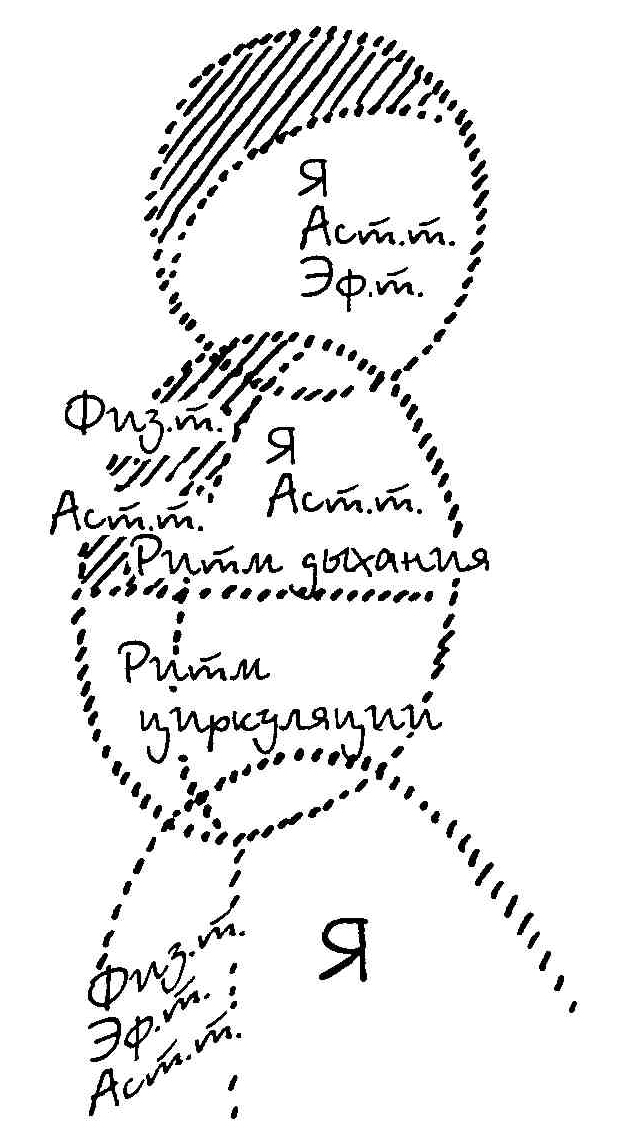 Я
Аст.т.
Эф.т.
Физ.т.
Я
Аст.т.
Аст.т.
Ритм дыхания
Ритм
циркуляции
Я
Физ.т.
Эф.т.
Аст.т.